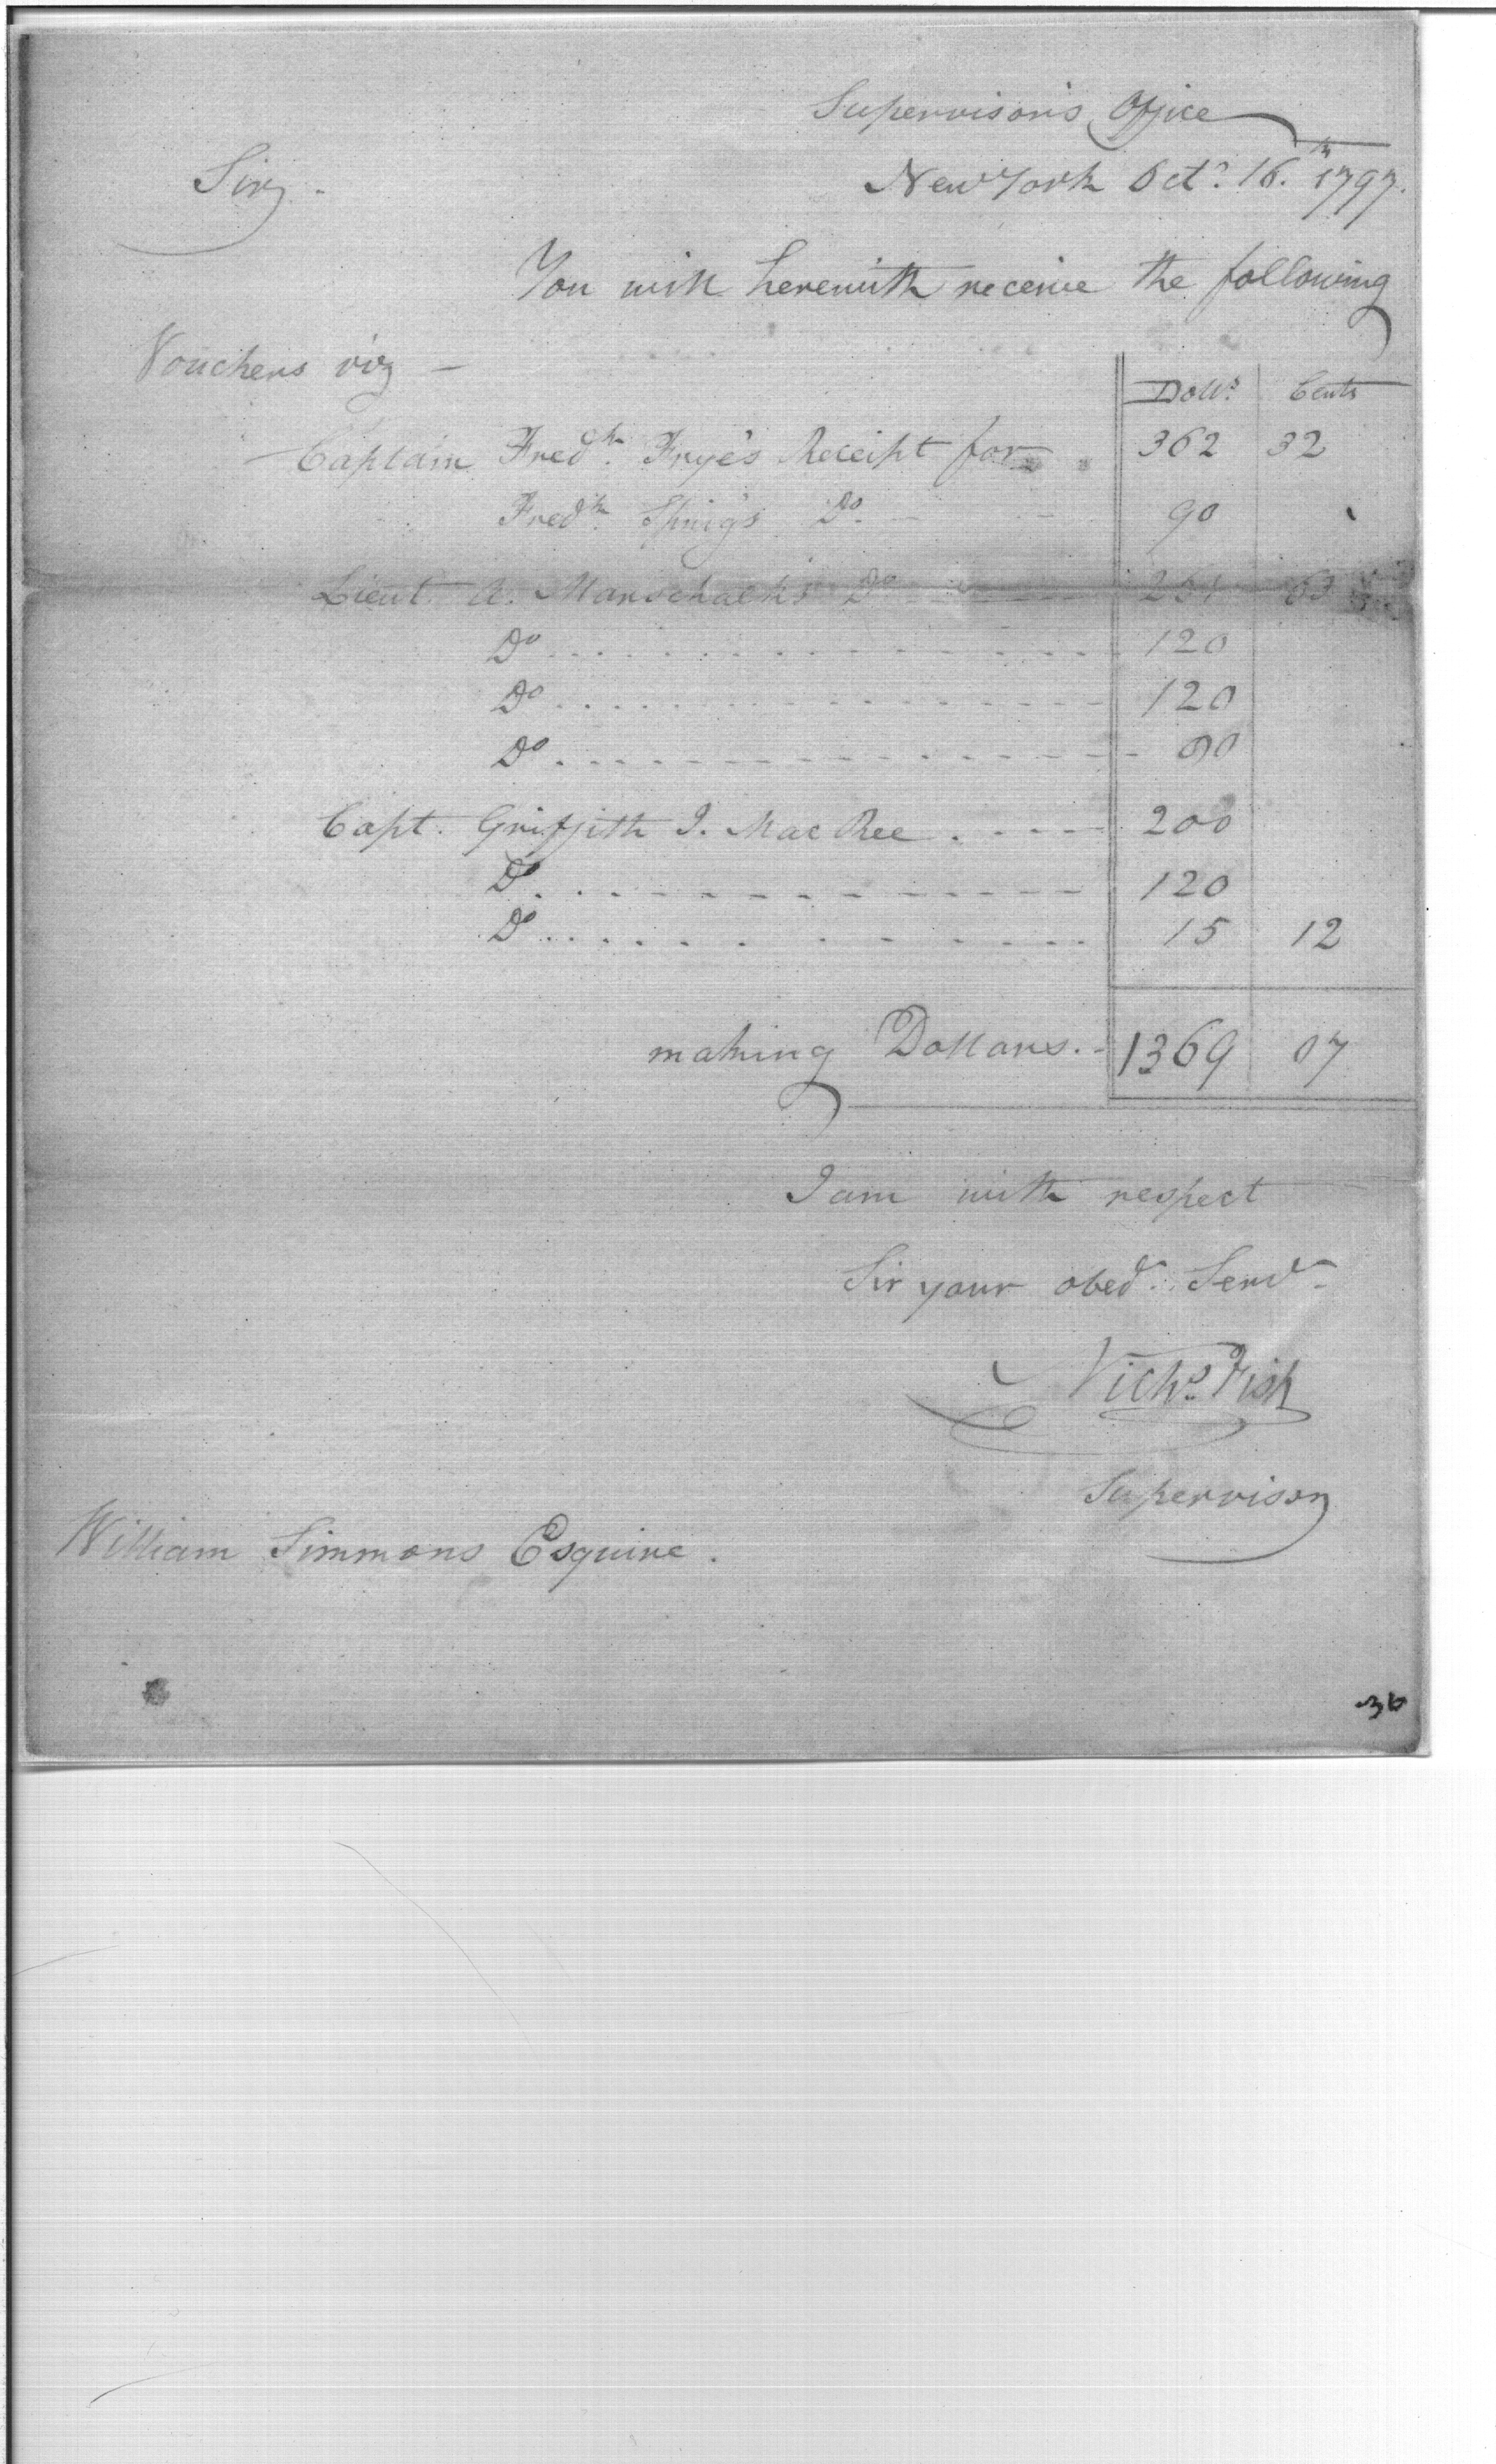 Supervisor's Office
New York Octr. 16th. 1797.
Sir,
You will herewith receive the following
Vouchers viz —
Dolls. Cents
Captain Fredk. Frye's Receipt for 362 32
Fredk. Do. 90
Lieut A. Marschalk's Do 251 63
Do 120
Do 120
Do 90
Capt. Griffith J. Mac Ree 200
Do 120
Do 15 12
making Dollars. 1369 07
I am with respect
Sir your obedt. Servt.
Nichs. Fish
Supervisor
William Simmons Esquire.
36